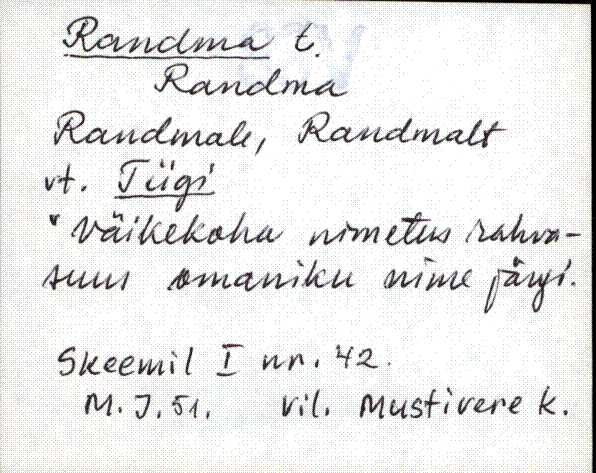 Randma t.
Randma
Randmale, Randmalt
vt. Tiigi
"Väikekoha nimetus rahva-
suus omaniku nime järgi.
Skeemil I nr. 42.
M. J. 51. Vil. Mustivere k.